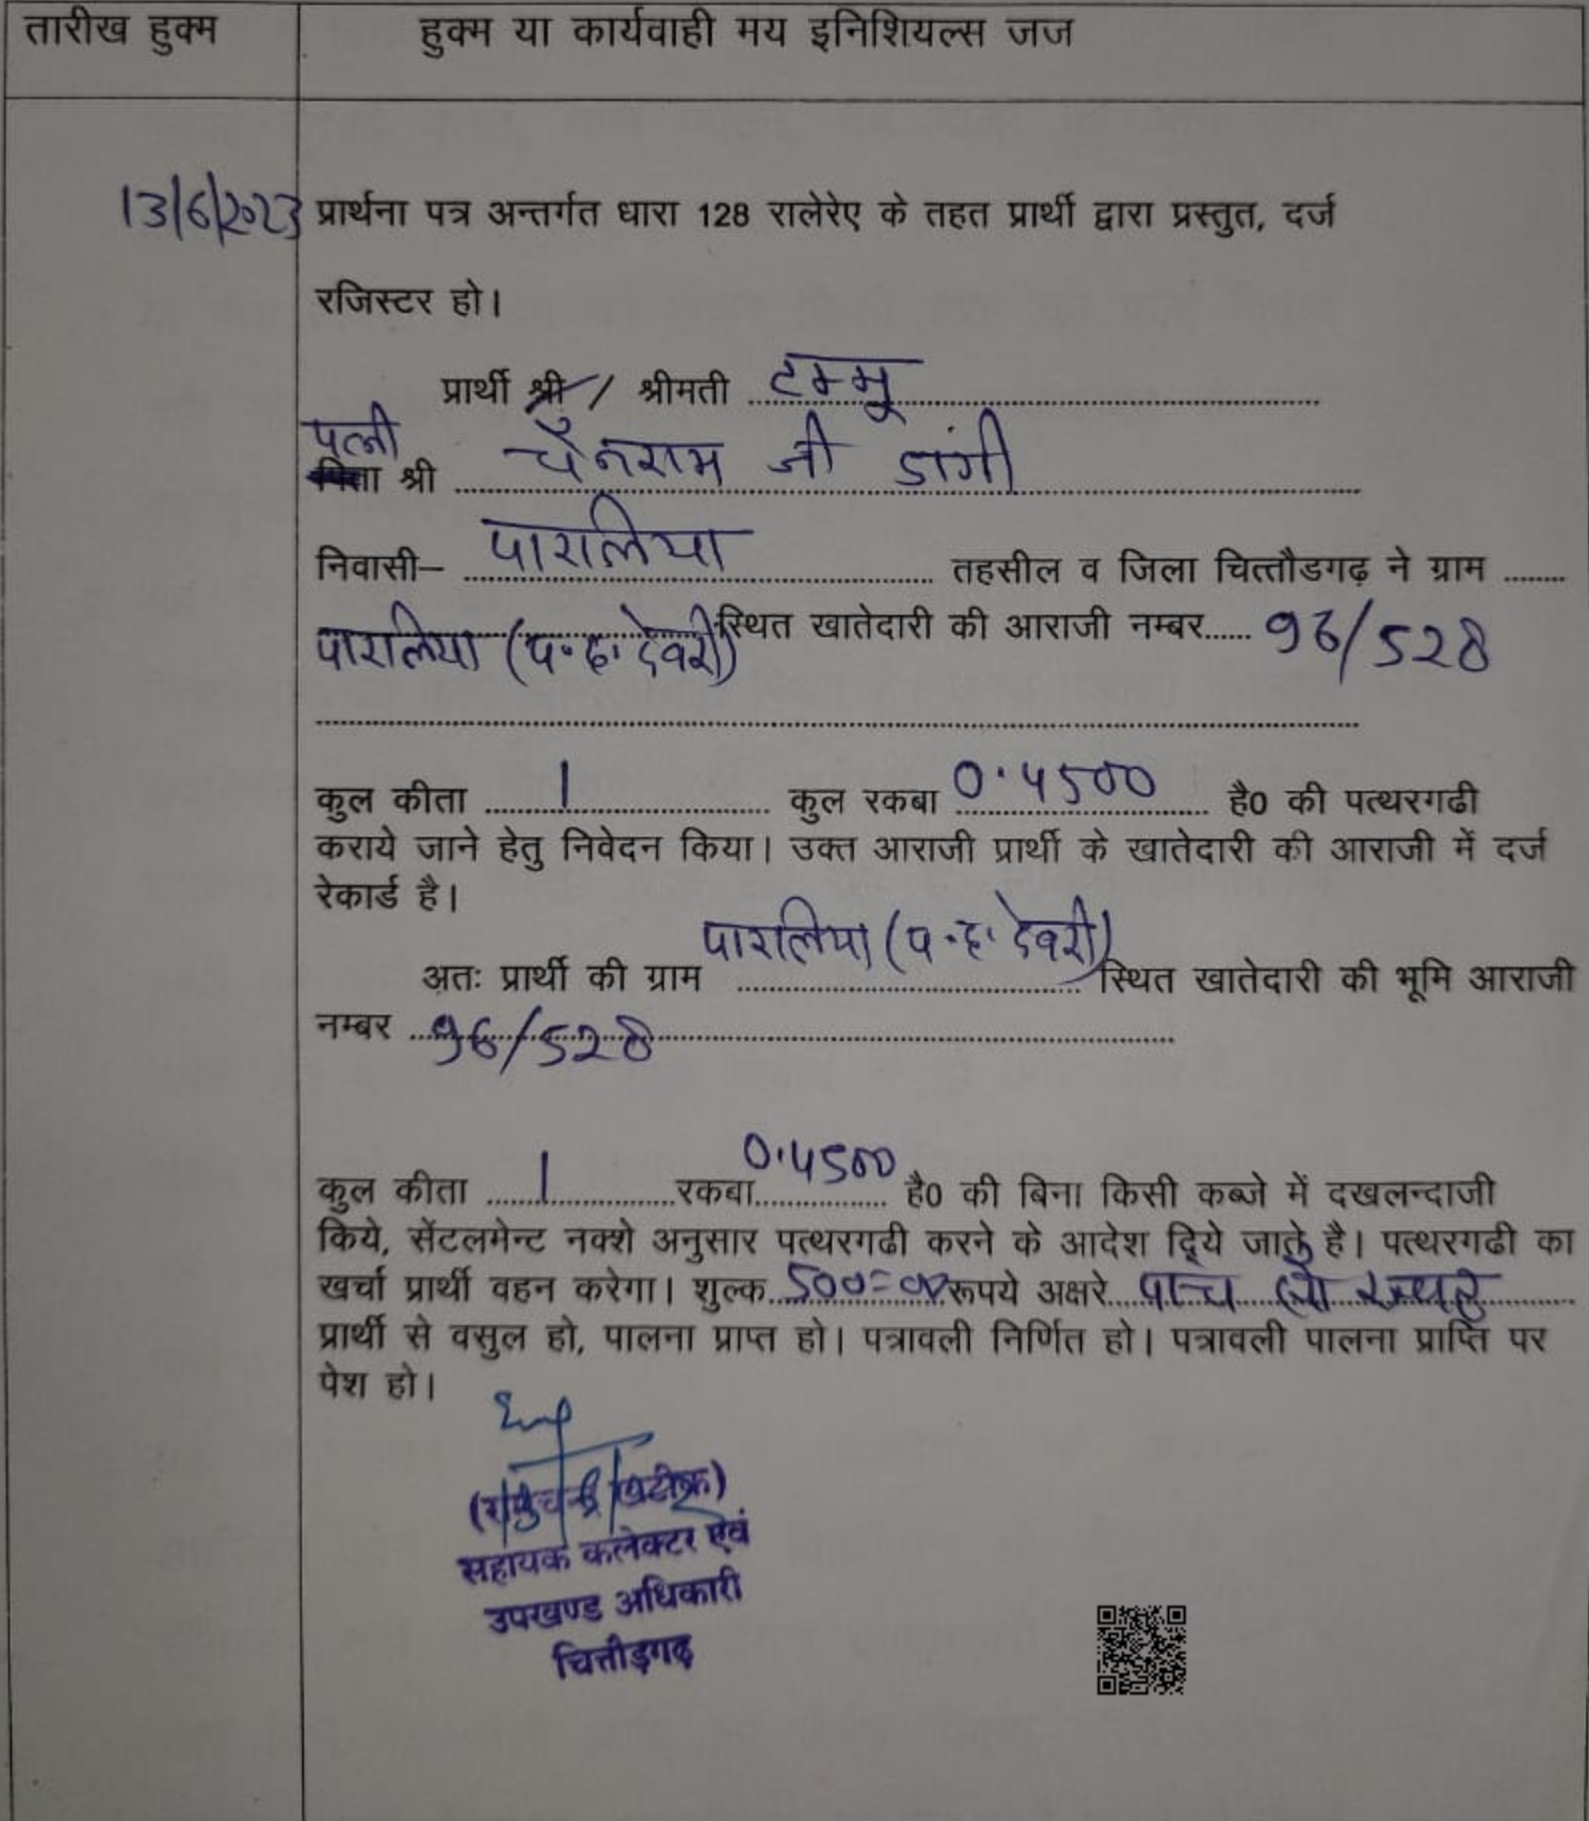 तारीख हुक्म
हुक्म या कार्यवाही मय इनिशियल्स जज
13/6/2023
प्रार्थना पत्र अन्तर्गत धारा 128 रालेरेए के तहत प्रार्थी द्वारा प्रस्तुत, दर्ज
रजिस्टर हो।
प्रार्थी श्री / श्रीमती टम्मू
पत्नी
पिता श्री चैनराम जी डांगी
निवासी– पारालिया तहसील व जिला चित्तौडगढ़ ने ग्राम
पारालिया (प.ह. देवरी) स्थित खातेदारी की आराजी नम्बर 96/528
कुल कीता 1 कुल रकबा 0.4500 है0 की पत्थरगढी
कराये जाने हेतु निवेदन किया। उक्त आराजी प्रार्थी के खातेदारी की आराजी में दर्ज
रेकार्ड है।
अतः प्रार्थी की ग्राम पारालिया (प.ह. देवरी) स्थित खातेदारी की भूमि आराजी
नम्बर 96/528
कुल कीता 1 रकबा 0.4500 है0 की बिना किसी कब्जे में दखलन्दाजी
किये, सेंटलमेन्ट नक्शे अनुसार पत्थरगढी करने के आदेश दिये जाते है। पत्थरगढी का
खर्चा प्रार्थी वहन करेगा। शुल्क 500=00 रूपये अक्षरे पाच सो
प्रार्थी से वसुल हो, पालना प्राप्त हो। पत्रावली निर्णित हो। पत्रावली पालना प्राप्ति पर
पेश हो।
सहायक कलेक्टर एवं
उपखण्ड अधिकारी
चित्तौड़गढ़